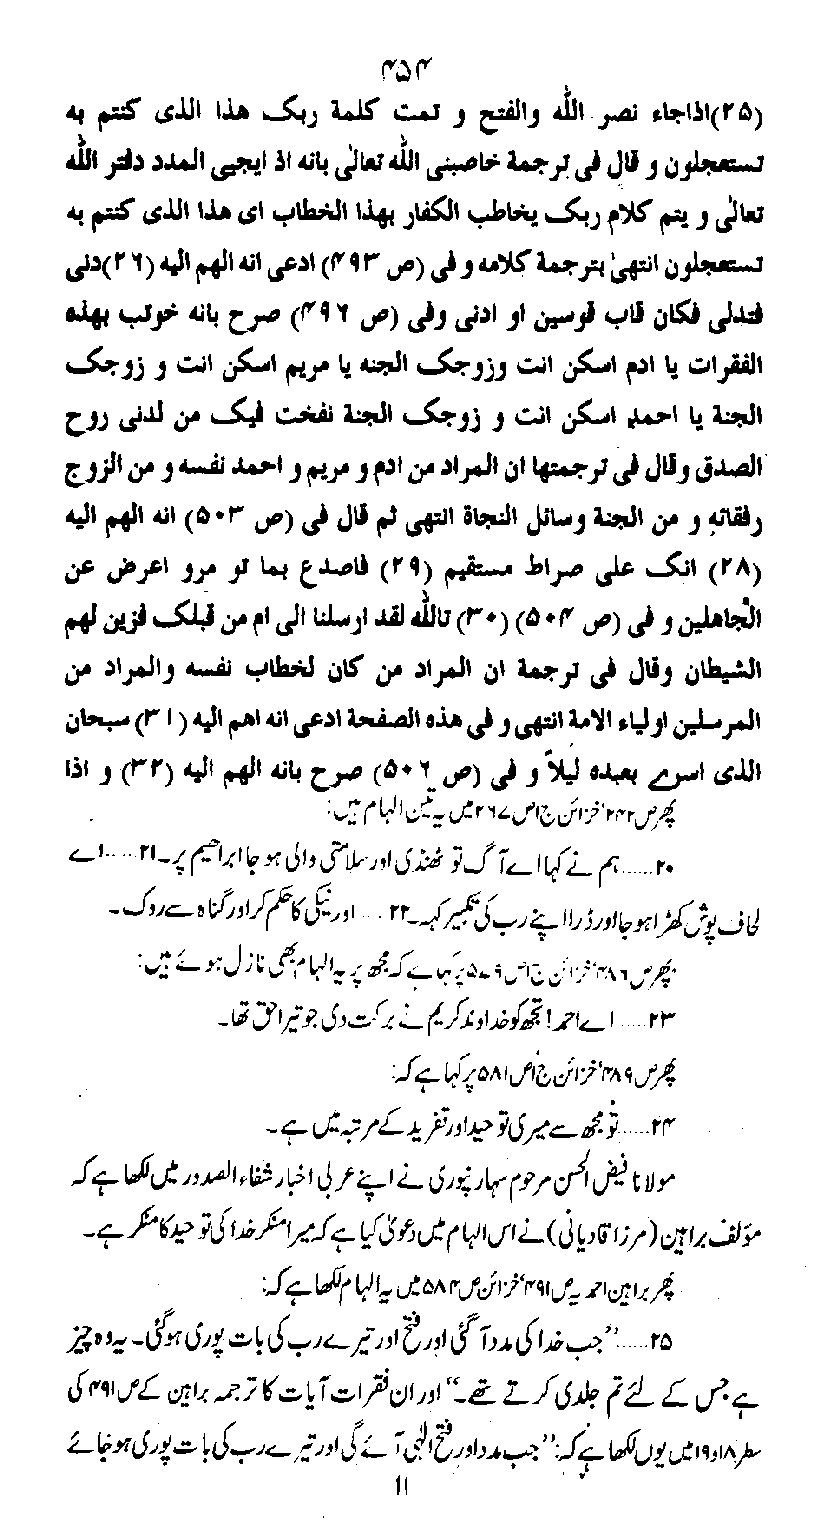 ۴۵۴
(۲۵)اذاجاء نصر اللّٰہ والفتح و تمت کلمة ربک ھذا الذی کنتم بہ
تستعجلون و قال فی ترجمة خاصبنی اللّٰہ تعالٰی بانہ اذ ایجیی المدد دفتر اللّٰہ
تعالٰی و یتم کلام ربک یخاطب الکفار بھذا الخطاب ای ھذا الذی کنتم بہ
تستعجلون انتھیٰ بترجمة کلامہ و فی (ص ۴۹۳) ادعی انہ الھم الیہ (۲۶)دنی
فتدلی فکان قاب قوسین او ادنی وفی (ص ۴۹۶) صرح بانہ خوتب بھذہ
الفقرات یا ادم اسکن انت وزوجک الجنہ یا مریم اسکن انت و زوجک
الجنة یا احمد اسکن انت و زوجک الجنة نفخت فیک من لدنی روح
الصدق وقال فی ترجمتھا ان المراد من ادم و مریم و احمد نفسہ و من الزوج
رفقائہ و من الجنة وسائل النجاة انتھی ثم قال فی (ص ۵۰۳) انہ الھم الیہ
(۲۸) انک علی صراط مستقیم (۲۹) فاصدع بما تو مرو اعرض عن
الجاھلین و فی (ص ۵۰۴) (۳۰) تاللّٰہ لقد ارسلنا الی ام من قبلک فزین لھم
الشیطان وقال فی ترجمة ان المراد من کان لخطاب نفسہ والمراد من
المرسلین اولیاء الامة انتھی و فی ھذہ الصفحة ادعی انہ اھم الیہ (۳۱) سبحان
الذی اسرے بعبدہ لیلاً و فی (ص ۵۰۶) صرح بانہ الھم الیہ (۳۲) و اذا
پھر ص ۲۴۲‘ خزائن ج۱ص۲۶۷میں یہ تین الہام ہیں:
۲۰.....ہم نے کہا اے آگ تو ٹھنڈی اور سلامتی والی ہو جا ابراہیم پر۔۲۱.....اے
لحاف پوش کھڑا ہو جا اور ڈرا اپنے رب کی تکبیر کہہ۔۲۲.....اور نیکی کا حکم کر اور گناہ سے روک۔
پھر ص ۴۸۶‘ خزائن ج۱ص ۵۷۹پر کہا ہے کہ مجھ پر یہ الہام بھی نازل ہوئے ہیں:
۲۳.....اے احمد! تجھ کو خداوند کریم نے برکت دی جو تیرا حق تھا۔
پھر ص ۴۸۹‘ خزائن ج۱ص۵۸۱پر کہا ہے کہ:
۲۴.....تو مجھ سے میری توحید اور تفرید کے مرتبہ میں ہے۔
مولانا فیض الحسن مرحوم سہارنپوری نے اپنے عربی اخبار شفاء الصدور میں لکھا ہے کہ
مؤلف براہین (مرزا قادیانی) نے اس الہام میں دعویٰ کیا ہے کہ میرا منکر خدا کی توحید کا منکر ہے۔
پھر براہین احمدیہ ص ۴۹۱‘ خزائن ص۵۸۴میں یہ الہام لکھا ہے کہ:
۲۵.....”جب خدا کی مدد آ گئی اور فتح اور تیرے رب کی بات پوری ہو گئی۔ یہ وہ چیز
ہے جس کے لئے تم جلدی کرتے تھے۔“ اور ان فقرات آیات کا ترجمہ براہین کے ص۴۹۱ کی
سطر ۱۸و۱۹میں یوں لکھا ہے کہ: ”جب مدد اور فتح الٰہی آئے گی اور تیرے رب کی بات پوری ہو جائے
۱۱